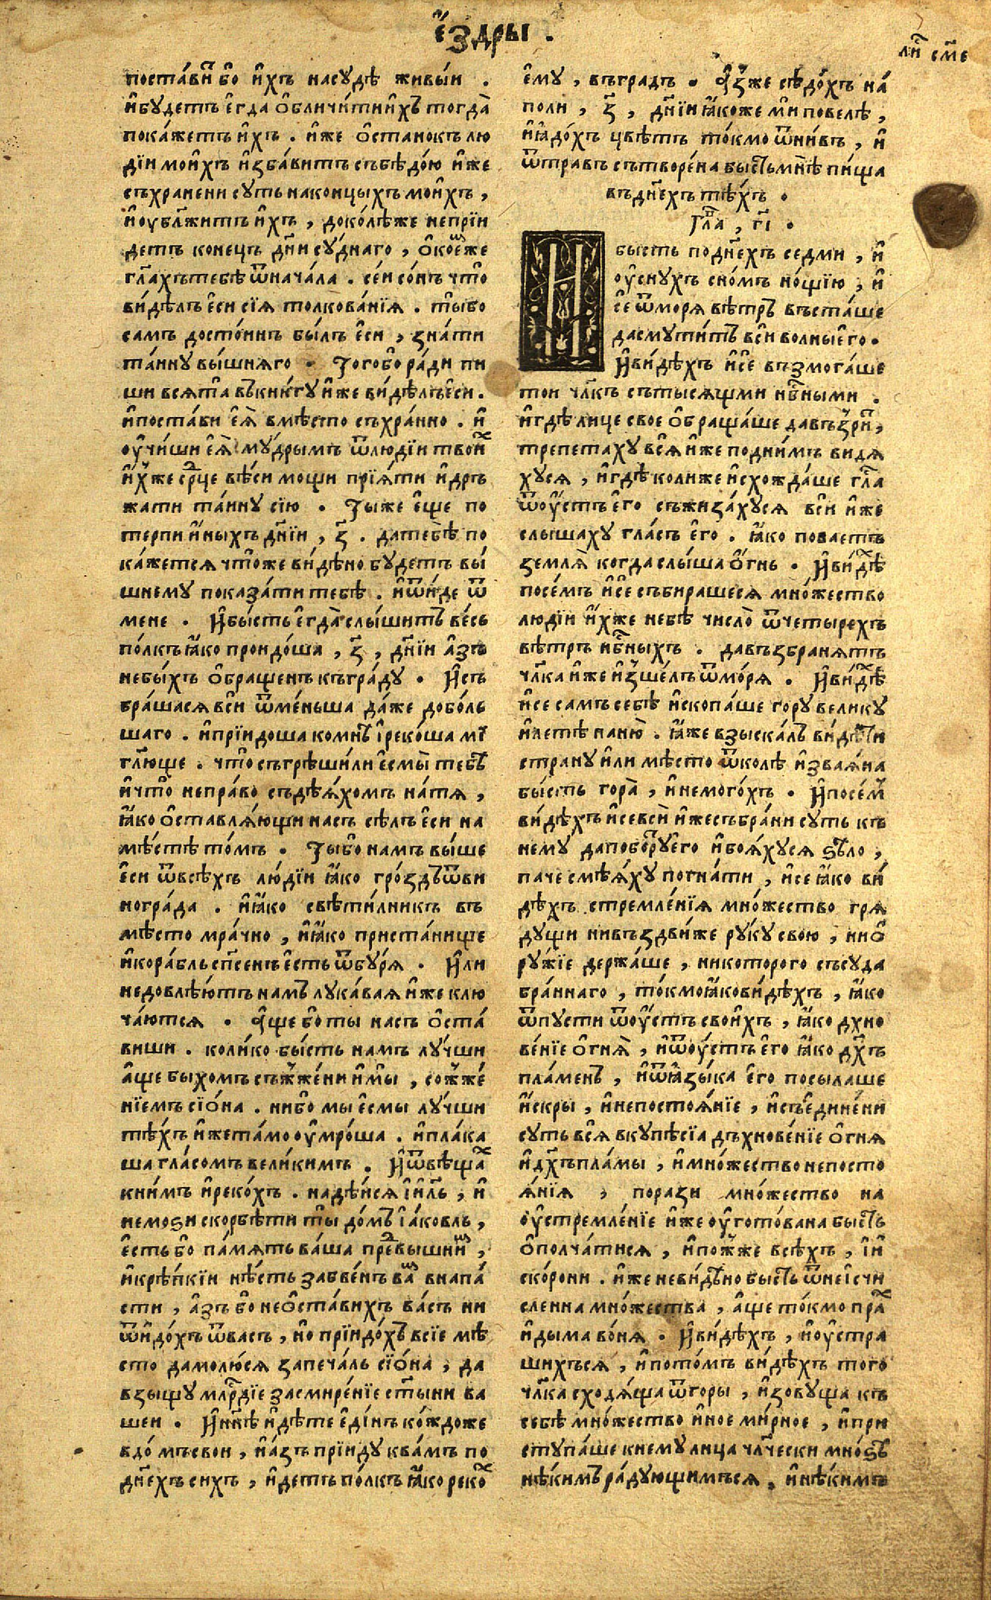 є҆́здры .
ли́ с҃м҃е
поста́ви́ бо и҆́хъ насудѣ̀ живы́и .
и҆бу́детъ е҆гда ѻ҆бличи́тъи҆́хъ тогда̀
пока́жетъ и҆́хъ . и҆́же ѻ҆ста́нокъ лю
ді́и мои҆́хъ и҆зба́витъ събѣдо́ю и҆́же
съхранени су́ть наконцы́хъ мои҆́хъ ,
и҆оубл҃жи́тъ и҆́хъ , доко́лѣже непріи
детъ коне́цъ дн҃и су́днаго , ѡ҆ коемже
гл҃ахътебѣ̀ ѿнача́ла . се́и со́нъ что̀
ви́дѣлъ є҆сѝ сія̀ толкова́нія . ты̀бо
са́мъ досто́инъ бы́лъ є҆сѝ , зна́ти
та́ину вы́шняго . Тогобо̀ ра́ди пи
шѝ вся̀та̀ въкни́гу и҆́же ви́дѣлъє҆сѝ .
и҆поста́ви є҆я̀ вмѣ́сто съхра́нно . и҆
оу҆чи́ши є҆я̀ му́дрымъ ѿлюді́и твои҆́х
и҆́хже ср҃це вѣ́си мо́щи прія́ти и҆дръ
жа́ти та́ину сію̀ . Ты́же є҆щѐ по
терпѝ и҆́ныхъ дн҃іи , з҃ . датебѣ̀ по
ка́жется что́же ви́дѣно бу́детъ вы́
шнему показа́ти тебѣ̀ . и҆ѿи́де ѿ
менѐ . И҆бы́сть є҆гда̀ слы́шитъ ве́сь
по́лкъ ꙗ҆́ко проидо́ша , з҃ , дн҃іи а҆́зъ
небы́хъ ѻ҆браще́нъ къгра́ду . И҆съ
бра́шася всѝ ѿме́ньша да́же до бо́ль
шаго . и҆пріидоша комнѣ̀ и҆реко́ша мѝ
гл҃юще . что̀ съгрѣши́ли є҆смы̀ тебѣ̀
и҆что̀ непра́во съдѣ́яхомъ на́тя ,
ꙗ҆́ко ѻ҆ставля́ющи на́съ сѣ́лъ є҆сѝ на
мѣ́стѣ то́мъ . Ты́бо на́мъ вы́ше
є҆сѝ ѿвсѣ́хъ люді́и ꙗ҆́ко гро́здъѿви
ногра́да . и҆ꙗ҆́ко свѣти́лникъ въ
мѣ́сто мра́чно , и҆ꙗ҆́ко приста́нище
и҆кора́бль сп҃се́нъ є҆́сть ѿбу́ря . И҆лѝ
недовлѣ́ютъ на́мъ лука́вая и҆́же клю
ча́ются . А҆́ще бо ты̀ на́съ ѻ҆ста́
виши . коли́ко бы́сть на́мъ лу́чши
а҆́ще бы́хомъ съжже́ни и҆мы̀ , сожже́
ніемъ сіо́на . нибо̀ мы̀ є҆смы̀ лу́чши
тѣ́хъ и҆́жета́мо оу҆мро́ша . и҆пла́ка
ша гла́сомъ вели́кимъ . И҆ѿвѣща́х
кни́мъ и҆реко́хъ . надѣ́ися і҆и҃ль , и҆
немозѝ скорбѣ́ти ты̀ до́мъ і҆а́ковль ,
є҆́сть бо па́мять ва́ша пре́двы́шни́м ,
и҆крѣ́пкіи нѣ́сть забве́нъ ва́с внапа́
сти , а҆́зъ бо неѻ҆ста́вихъ ва́съ ни
ѿидо́хъ ѿва́съ , но̀ пріидо́хъ всіѐ мѣ́
сто да молю́ся запеча́ль сіо́на , да
взыщу̀ мл҃рдіе засмире́ніе ст҃ы́ни ва́
шеи . И҆нн҃ѣ и҆дѣ́те є҆ди́нъ ко́ждоже
вдо́мъсвои , и҆а҆́зъ пріиду квамъ по
дн҃ехъ си́хъ , и҆де́тъ по́лкъ ꙗ҆́ко реко́х
є҆му̀ , въгра́дъ . А҆́зже сѣдо́хъ на́
поли , з҃ , дн҃іи ꙗ҆́коже мѝ повелѣ̀ ,
и҆ꙗ҆до́хъ цвѣ́тъ то́кмо ѿни́въ , и҆
ѿтра́въ сътворе́на бы́стьмнѣ̀ пи́ща
въдн҃е́хъ тѣ́хъ .
Гл҃а , г҃і .
И
бы́сть поднехъ седмѝ , и҆
оу҆сну́хъ сно́мъ но́щію , и҆
сѐ ѿмо́ря вѣ́тръ въста́ше
да смути́тъ всѝ во́лны є҆го̀ .
И҆ви́дѣхъ и҆сѐ възмога́ше
то́и чл҃къ сътысящми нб҃ными .
и҆гдѣ̀ лицѐ своѐ ѻ҆браща́ше давъзри́т ,
трепета́ху вся̀ и҆́же подни́мъ видя́
хуся , и҆гдѣ̀ коли́же и҆схожда́ше гл҃а
ѿоу҆́стъ є҆го̀ съжиза́хуся всѝ и҆́же
слы́шаху гла́съ є҆го̀ . ꙗ҆́ко пова́етъ
земля̀ когда слы́ша ѻ҆́гнь . И҆ви́дѣх
посе́мъ и҆сѐ събира́шеся мно́жество
люді́и и҆́хже небѣ̀ число̀ ѿчеты́рехъ
вѣ́тръ нб҃ныхъ . давъзбраня́тъ
чл҃ка и҆́же и҆зше́лъ ѿмо́ря . И҆ви́дѣх
и҆сѐ са́мъ себѣ̀ и҆скопа́ше го́ру вели́ку
и҆летѣ̀ на́ню . а҆́же взыска́лъ ви́дѣти
страну̀ и҆лѝ мѣ́сто ѿко́лѣ и҆зва́яна
бы́сть гора̀ , и҆немого́хъ . И҆посе́м
ви́дѣхъ и҆сѐвсѝ и҆́жесъбра́ни су́ть къ
нему̀ дапобо́рутєго и҆боя́хуся ѕѣло̀ ,
па́че смѣ́яху погна́ти , и҆сѐ ꙗ҆́ко ви́
дѣхъ стремле́нія мно́жество гря
ду́щи нивъздви́же ру́ку свою̀ , ниѻ҆
ру́жіе держа́ше , нико́торого съсу́да
бра́ннаго , то́кмоꙗ҆́кови́дѣхъ , ꙗ҆́ко
ѿпустѝ ѿоу҆́стъ свои҆́хъ , ꙗ҆́ко дх҃но
ве́ніе ѻ҆гня̀ , и҆ѿоу҆́стъ є҆го̀ ꙗ҆́ко дх҃ъ
пла́менъ , и҆ѿꙗ҆зы́ка є҆го̀ посыла́ше
и҆́скры , и҆непостоя́ніе , и҆съєдине́ни
су́ть вся̀ вку́пѣсія дъхнове́ніе ѻ҆гня̀
и҆дх҃ъпла́мы , и҆мно́жество непосто
я́нія , поразѝ мно́жество на
оу҆стремле́ніе и҆́же оу҆гото́вана бы́сть
ѻ҆полча́тися , и҆пожже всѣ́хъ , і҆и҆
ско́рони . и҆́же неви́дѣно бы́сть ѿнеи҆счи
сле́нна мно́жества , а҆́ще то́кмо пра́х
и҆ды́ма воня̀ . И҆ви́дѣхъ , и҆оу҆стра
ши́хъся , и҆пото́мъ ви́дѣхъ того̀
чл҃ка сходя́ща ѿгоры̀ , и҆зову́ща къ
себѣ̀ мно́жество и҆но́е ми́рное , и҆при
ступа́ше кнему̀ лица̀ чл҃чески мно́зѣ
нѣ́кимъ ра́дующимъся , и҆нѣ́кимъ